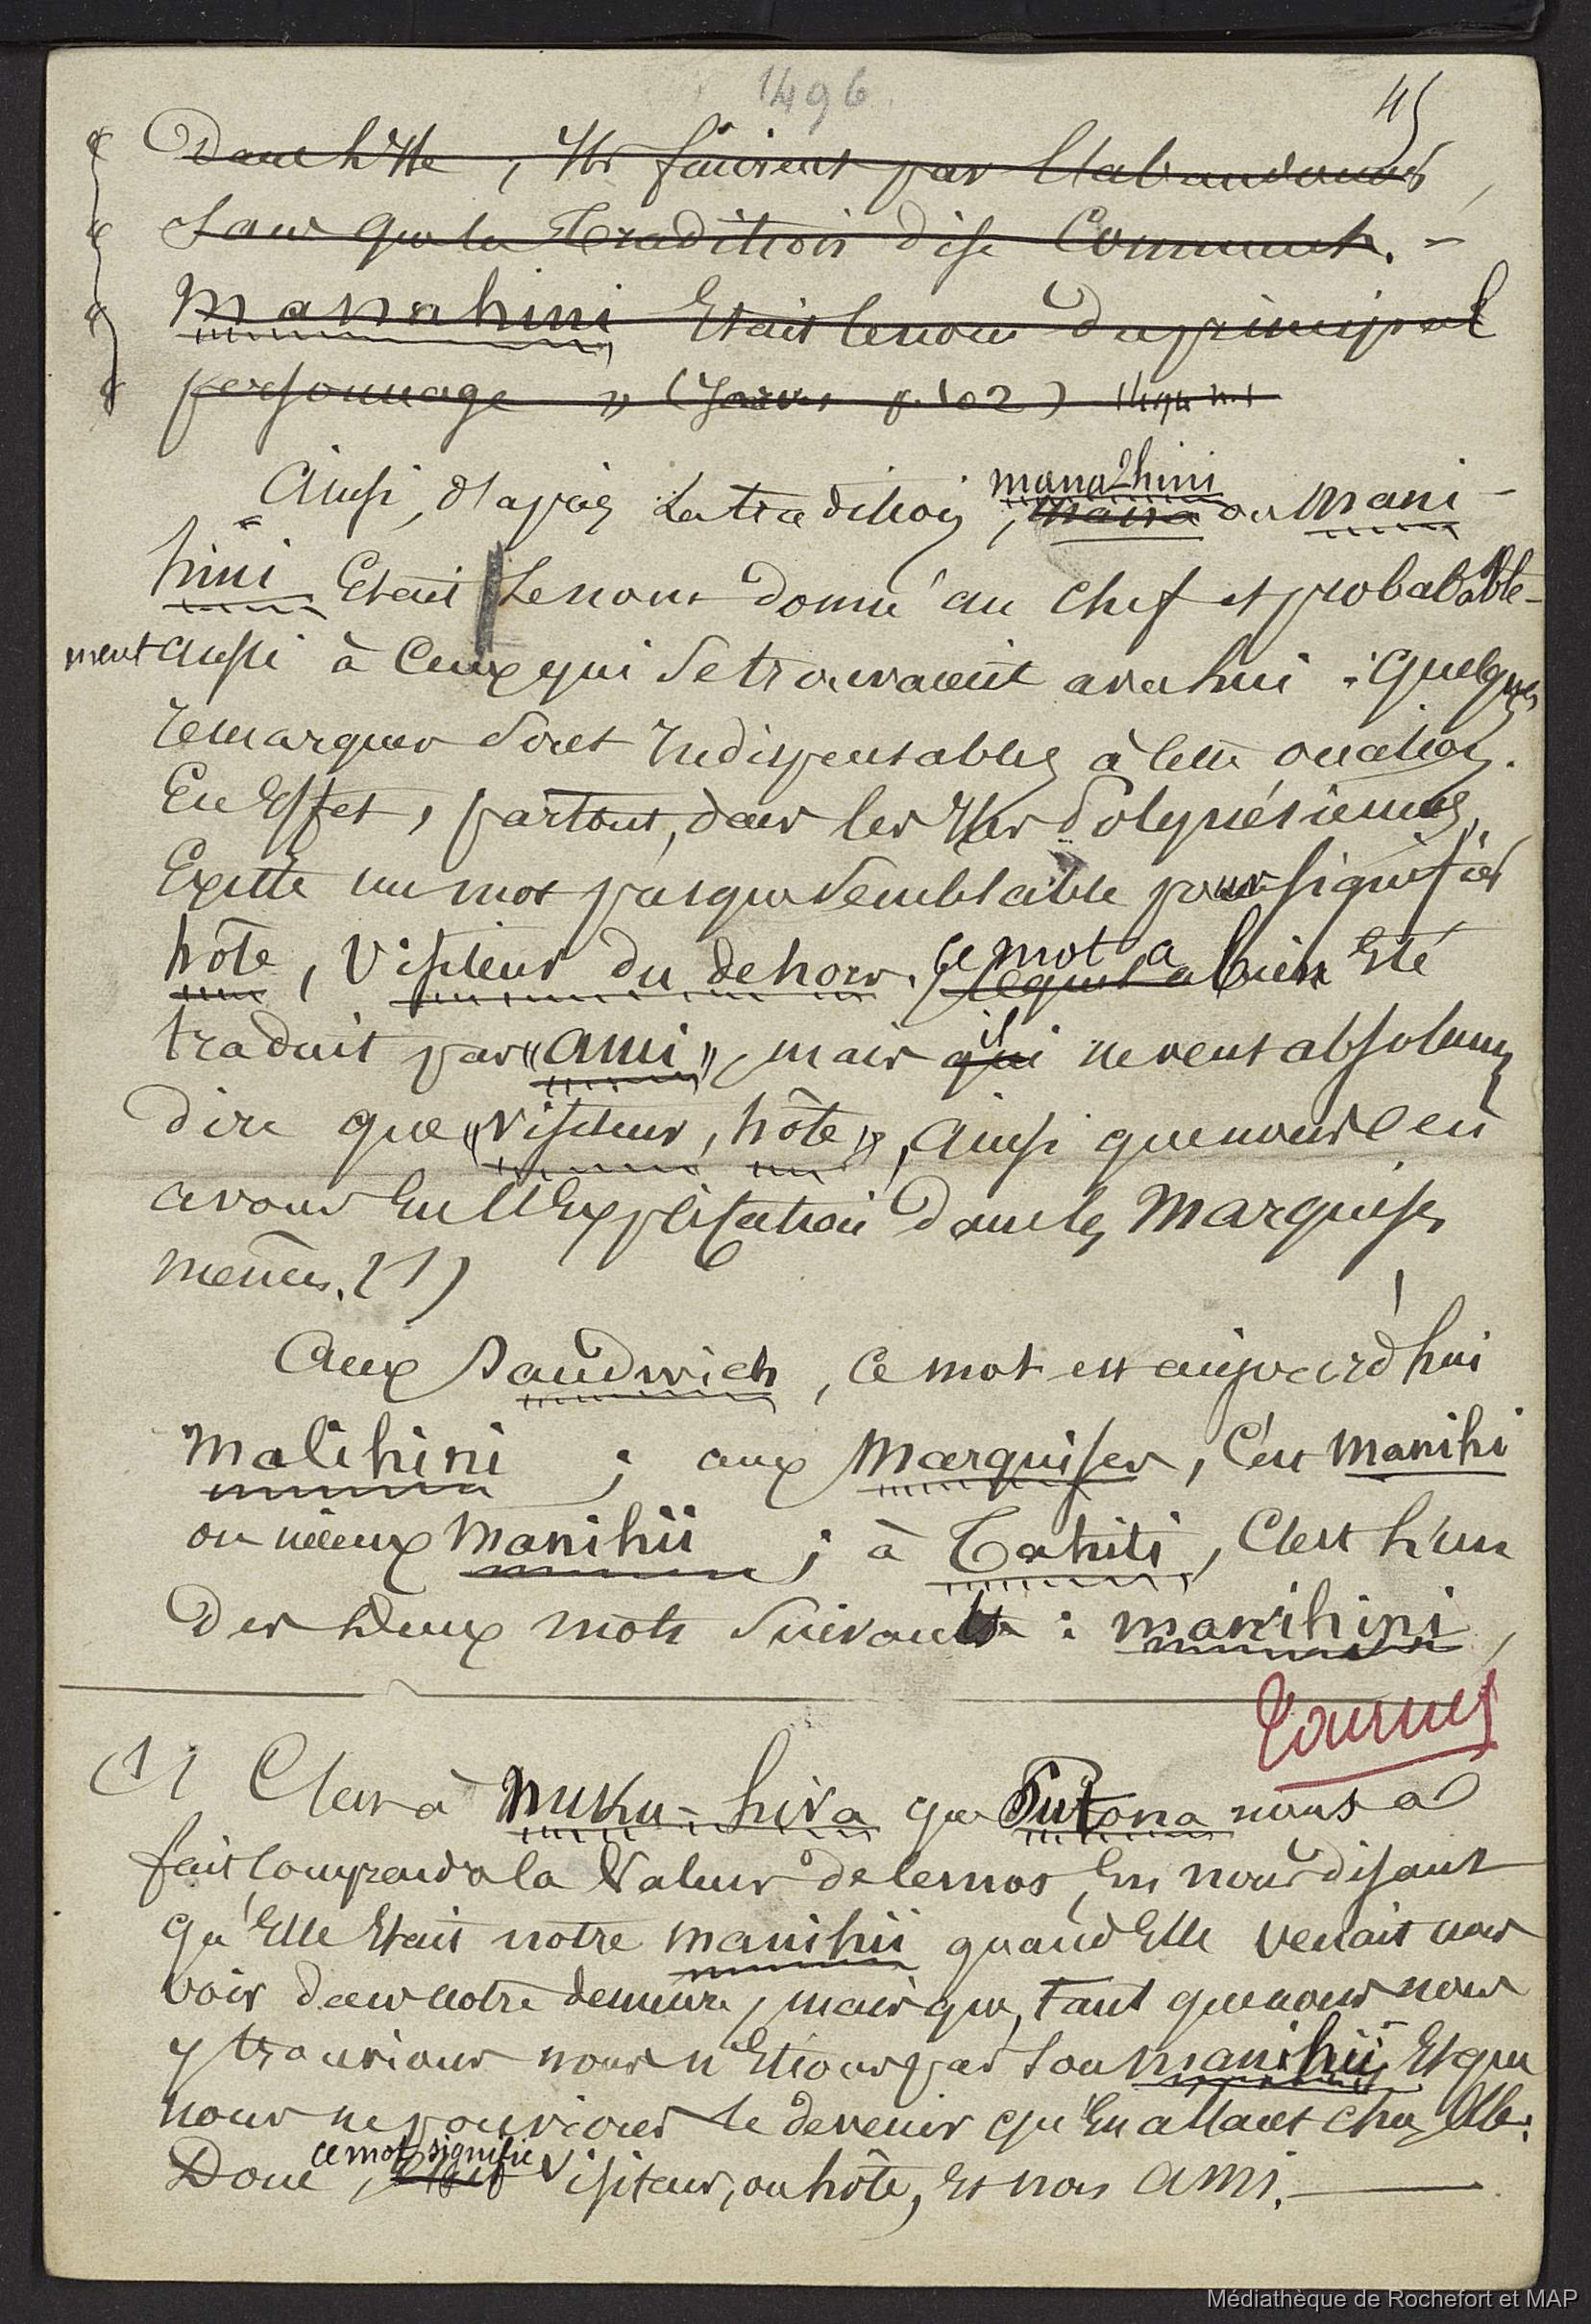 1496
45
dans l'Ile, Ils furent pas l'abandonner,
sans que la Tradition dise Comment. -
Manahini Etait le nom du principal
personnage » (Jarves p. 102)
Ainsi, d'après la tradition, manahini
mana ou mani-
hini Etait le nom donné au chef et probable-
ment aussi à Ceux qui se trouvaient avec lui : quelques
remarques sont Indispensables à cette occasion.
En Effet, partout, dans les Iles Polynésiennes,
Existe un mot presque semblable pour signifier
hôte, Visiteur du dehors. Ce mot a
lequel a bien Eté
traduit par « ami », mais il
qui ne veut absolument
dire que « visiteur, hôte », Ainsi que nous en
avons eu l'Explication dans les Marquises
mêmes. (1)
Aux Sandwich, ce mot est aujourd'hui
malihini ; aux Marquises, c'est manihi
ou mieux manihii ; à Tahiti, C'est l'un
des deux mots suivants : manihini,
Tournez
(1) C'est à Nuku-hiva que Putona nous a
fait comprendre la Valeur de ce mot, En nous disant
qu'Elle Etait notre manihii quand Elle venait nous
voir dans notre demeure, mais que, tant que nous nous
y trouvions nous n'Etions pas son manihii, Et que
nous ne pouvions le devenir qu'En allant chez Elle.
Donc, ce mot signifie
Visiteur, ou hôte, Et non Ami.
Médiathèque de Rochefort et MAP